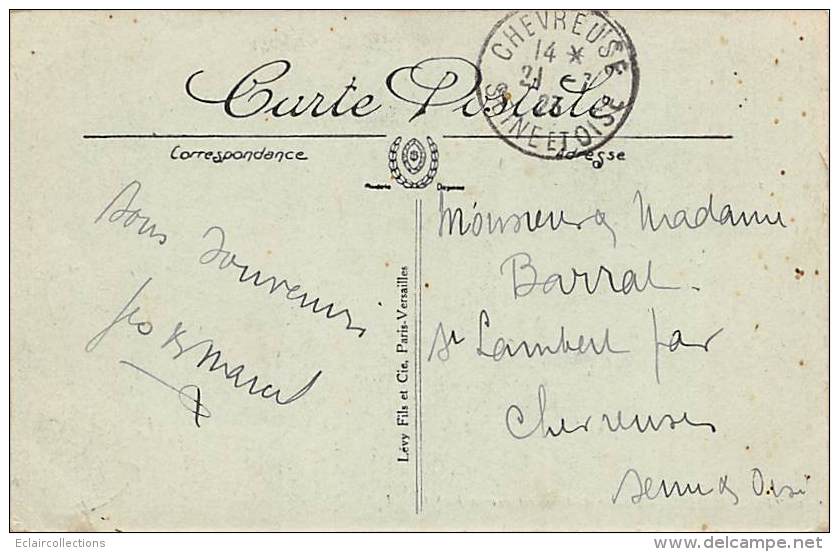 CHEVREUSE
14 *
21 - 7
23
SEINE ET OISE
Carte Postale
Correspondance
Adresse
bons souvenirs
Geo & Marcel
Lévy Fils et Cie, Paris-Versailles
Monsieur & Madame
Barrat
St Lambert par
Chevreuse
Seine & Oise
Eclaircollections
www.delcampe.net